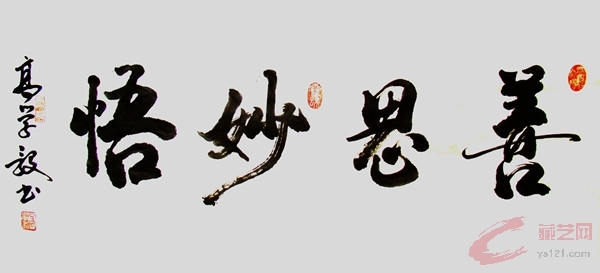 善思妙悟
高学毅书
藏艺网
ys121.com